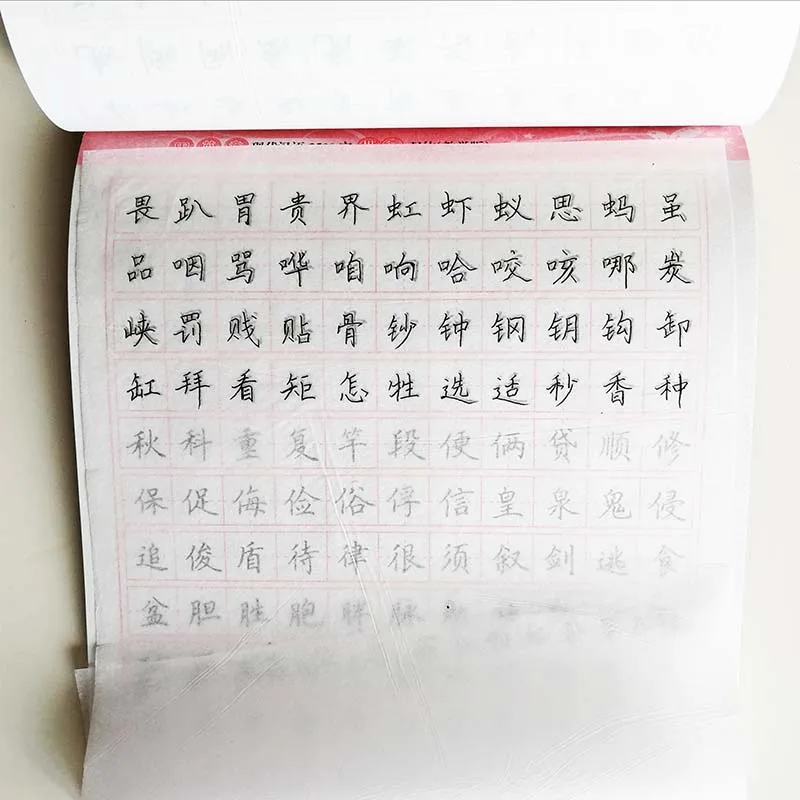 畏趴胃贵界虹虾蚁思蚂虽
品咽骂哗咱响哈咬咳哪炭
峡罚贱贴骨钞钟钢钥钩卸
缸拜看矩怎牲选适秒香种
秋科重复竿段便俩贷顺修
保促侮俭俗俘信皇泉鬼侵
追俊盾待律很须叙剑逃食
盆胆胜胞胖脉